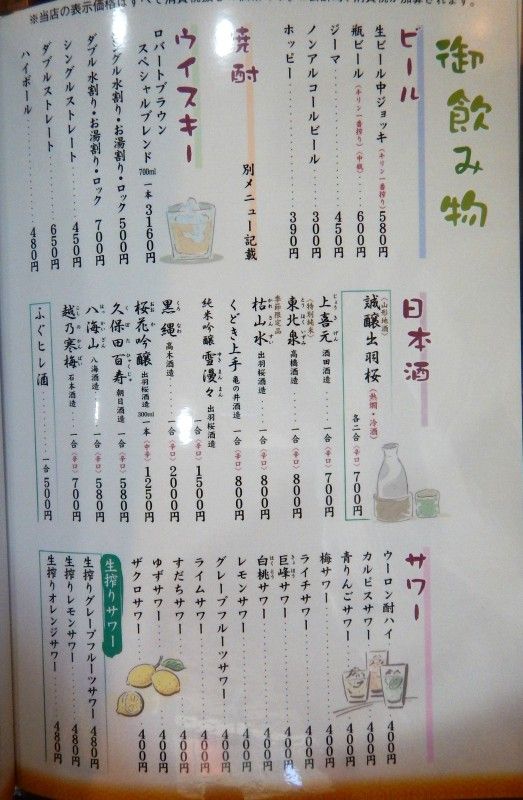 ※当店の表示価格はすべて
御飲み物
ビール
生ビール中ジョッキ (キリン一番搾り) 580円
瓶ビール (キリン一番搾り) (中瓶) 600円
ジーマ 450円
ノンアルコールビール 300円
ホッピー 390円
焼酎
別メニュー記載
ウイスキー
ロバートブラウン
スペシャルブレンド 700ml 一本 3160円
シングル水割り・お湯割り・ロック 500円
ダブル水割り・お湯割り・ロック 700円
シングルストレート 450円
ダブルストレート 650円
ハイボール 480円
日本酒
(山形地酒)
誠醸出羽桜 (熱燗・冷酒) 各二合 700円
上喜元 じょうきげん 酒田酒造 一合 (辛口) 700円
(特別純米)
東北泉 とうほくいずみ 高橋酒造 一合 (辛口) 800円
季節限定品
枯山水 かれさんすい 出羽桜酒造 一合 (辛口) 800円
くどき上手 亀の井酒造 一合 (辛口) 800円
純米吟醸 雪漫々 ゆきまんまん 出羽桜酒造 一合 (辛口) 1500円
黒縄 くろなわ 高木酒造 一合 (辛口) 2000円
桜花吟醸 おうか 出羽桜酒造 300ml 一本 (中辛) 1250円
久保田百寿 くぼたひゃくじゅ 朝日酒造 一合 (辛口) 580円
八海山 はっかいさん 八海酒造 一合 (辛口) 580円
越乃寒梅 こしのかんばい 石本酒造 一合 (辛口) 700円
ふぐヒレ酒 一合 500円
サワー
ウーロン酎ハイ 400円
カルピスサワー 400円
青りんごサワー 400円
梅サワー 400円
ライチサワー 400円
巨峰サワー きょほう 400円
白桃サワー はくとう 400円
レモンサワー 400円
グレープフルーツサワー 400円
ライムサワー 400円
すだちサワー 400円
ゆずサワー 400円
ザクロサワー 400円
生搾りサワー
生搾りグレープフルーツサワー 480円
生搾りレモンサワー 480円
生搾りオレンジサワー 480円